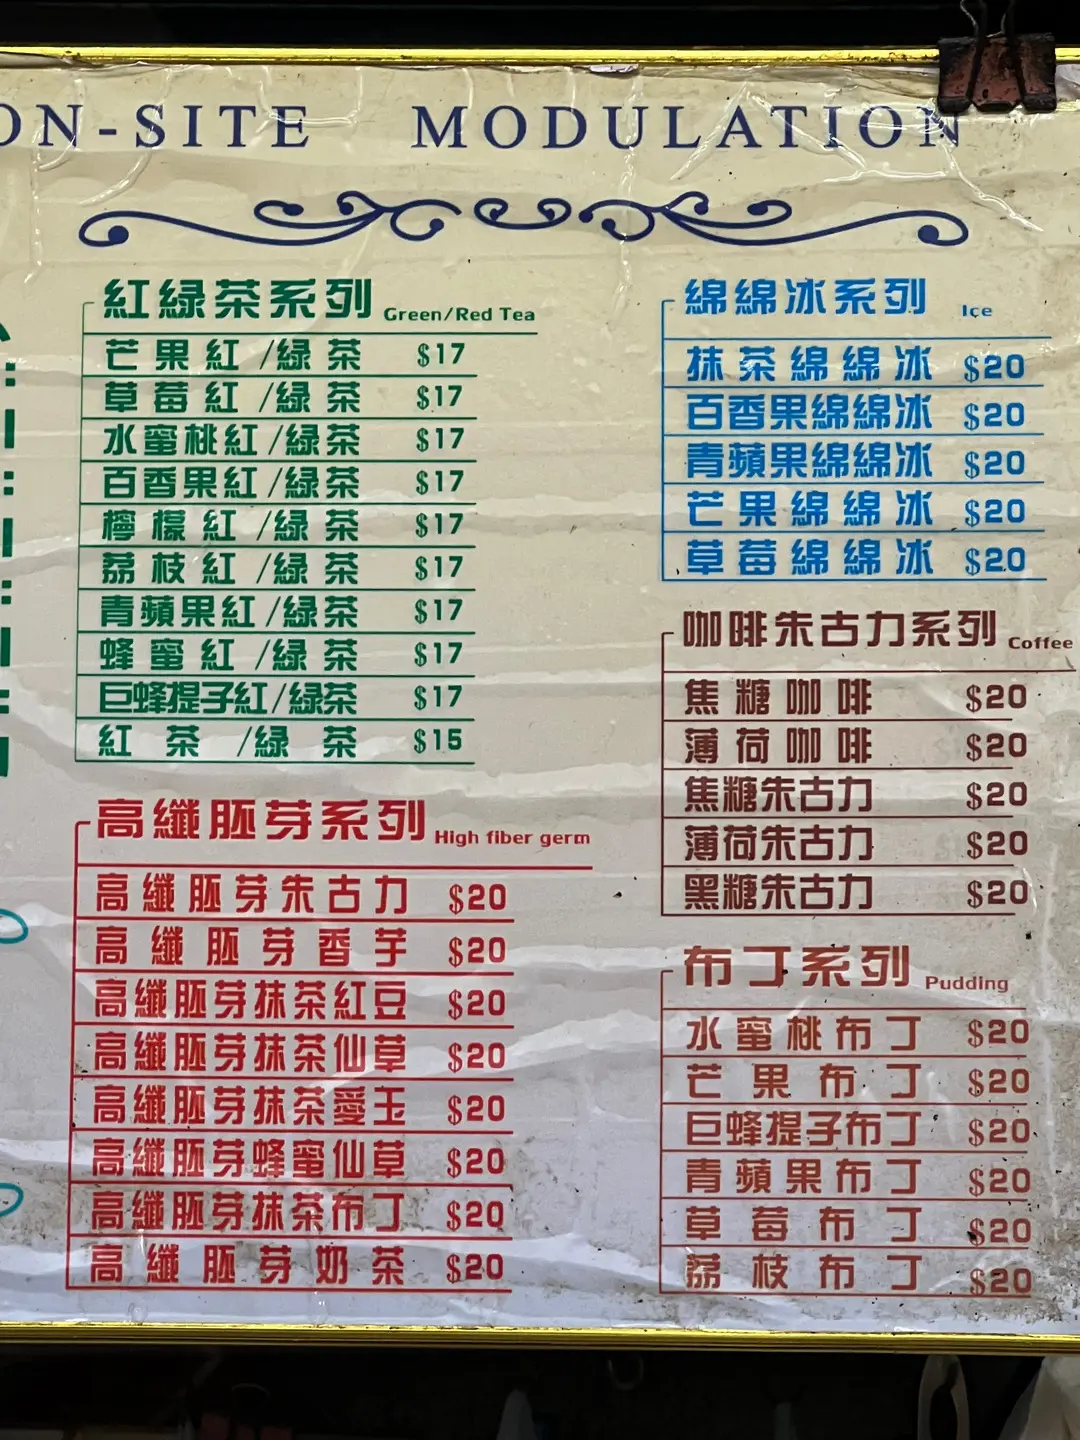 ON-SITE MODULATION
紅綠茶系列 Green/Red Tea
芒果紅/綠茶 $17
草莓紅/綠茶 $17
水蜜桃紅/綠茶 $17
百香果紅/綠茶 $17
檸檬紅/綠茶 $17
荔枝紅/綠茶 $17
青蘋果紅/綠茶 $17
蜂蜜紅/綠茶 $17
巨蜂提子紅/綠茶 $17
紅茶/綠茶 $15
高纖胚芽系列 High fiber germ
高纖胚芽朱古力 $20
高纖胚芽香芋 $20
高纖胚芽抹茶紅豆 $20
高纖胚芽抹茶仙草 $20
高纖胚芽抹茶愛玉 $20
高纖胚芽蜂蜜仙草 $20
高纖胚芽抹茶布丁 $20
高纖胚芽奶茶 $20
綿綿冰系列 Ice
抹茶綿綿冰 $20
百香果綿綿冰 $20
青蘋果綿綿冰 $20
芒果綿綿冰 $20
草莓綿綿冰 $20
咖啡朱古力系列 Coffee
焦糖咖啡 $20
薄荷咖啡 $20
焦糖朱古力 $20
薄荷朱古力 $20
黑糖朱古力 $20
布丁系列 Pudding
水蜜桃布丁 $20
芒果布丁 $20
巨蜂提子布丁 $20
青蘋果布丁 $20
草莓布丁 $20
荔枝布丁 $20